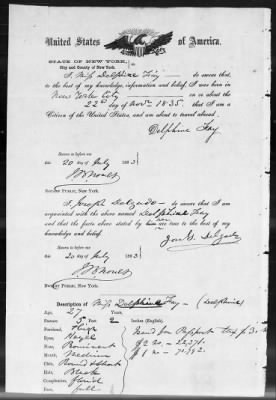 United States of America.
STATE OF NEW YORK,
City and County of New York.
I, Miss Delphine Fay do swear that,
to the best of my knowledge, information and belief, I was born in
New York City on or about the
22d day of Novr 1835. that I am a
Citizen of the United States, and am about to travel abroad.
Delphine Fay
Sworn to before me
this 20 day of July 1863
NOTARY PUBLIC, New York.
I, Joseph Delgado do swear that I am
acquainted with the above named Delphine Fay
and that the facts above stated by him are true to the best of my
knowledge and belief.
Jos. Delgado
Sworn to before me
this 20 day of July 1863
NOTARY PUBLIC, New York.
Description of Miss Delphine Fay (Delphine)
Age, 27 Years.
Stature, 5 Feet 2 Inches (English).
Forehead, High
Eyes, Hazel
Nose, Prominent
Mouth, Medium
Chin, Round & Short
Hair, Black
Complexion, Florid
Face, full